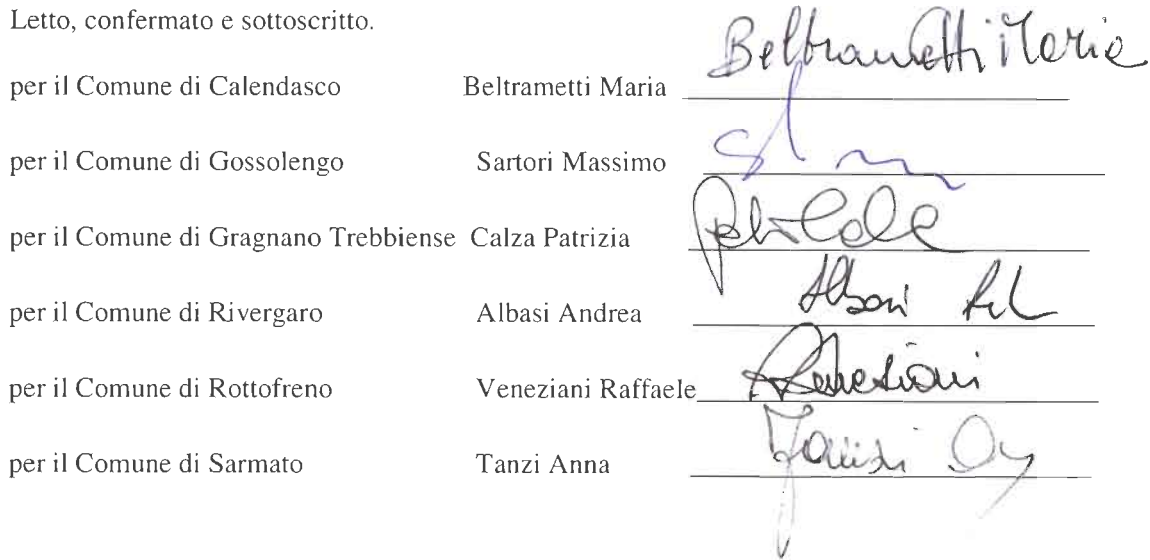 Letto, confermato e sottoscritto.
per il Comune di Calendasco Beltrametti Maria Beltrametti Maria
per il Comune di Gossolengo Sartori Massimo
per il Comune di Gragnano Trebbiense Calza Patrizia
per il Comune di Rivergaro Albasi Andrea Albasi
per il Comune di Rottofreno Veneziani Raffaele Veneziani
per il Comune di Sarmato Tanzi Anna